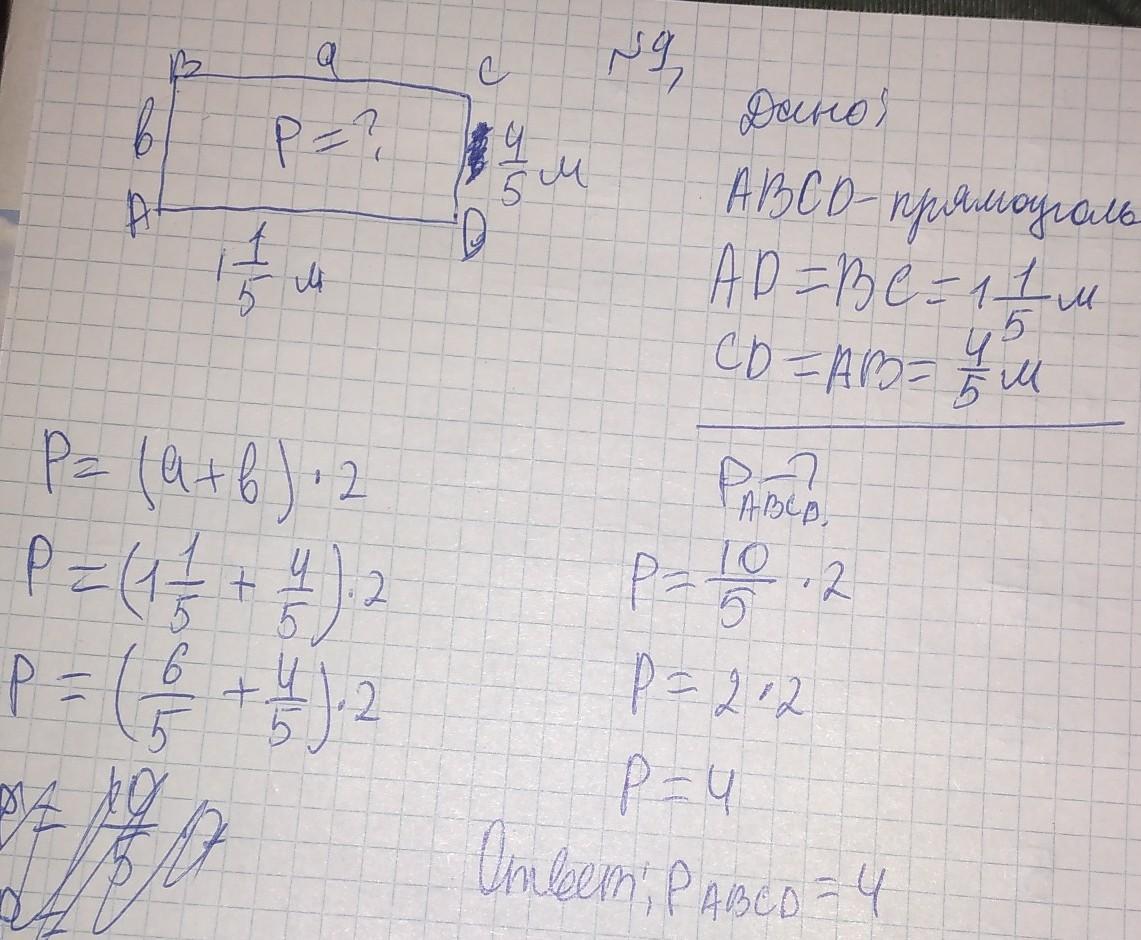 №9,
B a C
b P = ? 4/5 м
A D
1 1/5 м
Дано:
ABCD - прямоуголь
AD = BC = 1 1/5 м
CD = AB = 4/5 м
P ABCD - ?
P = (a + b) · 2
P = (1 1/5 + 4/5) · 2
P = (6/5 + 4/5) · 2
P = 10/5 · 2
P = 2 · 2
P = 4
Ответ: P ABCD = 4